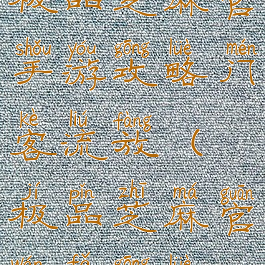 极品芝麻官
shǒu yóu gōng lüè mén
手游攻略门
kè liú fàng
客流放（
jí pǐn zhī má guān
极品芝麻官